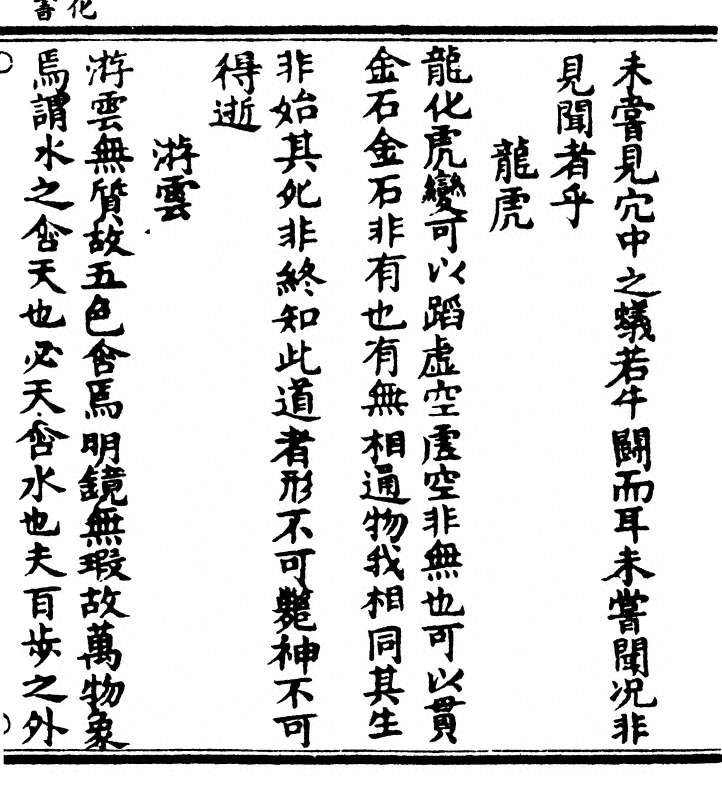 化書
未嘗見穴中之蟻若牛鬪而耳未嘗聞况非
見聞者乎
龍虎
龍化虎變可以蹈虛空虛空非無也可以貫
金石金石非有也有無相通物我相同其生
非始其死非終知此道者形不可斃神不可
得逝
游雲
游雲無質故五色含焉明鏡無瑕故萬物象
焉謂水之含天也必天含水也夫百步之外